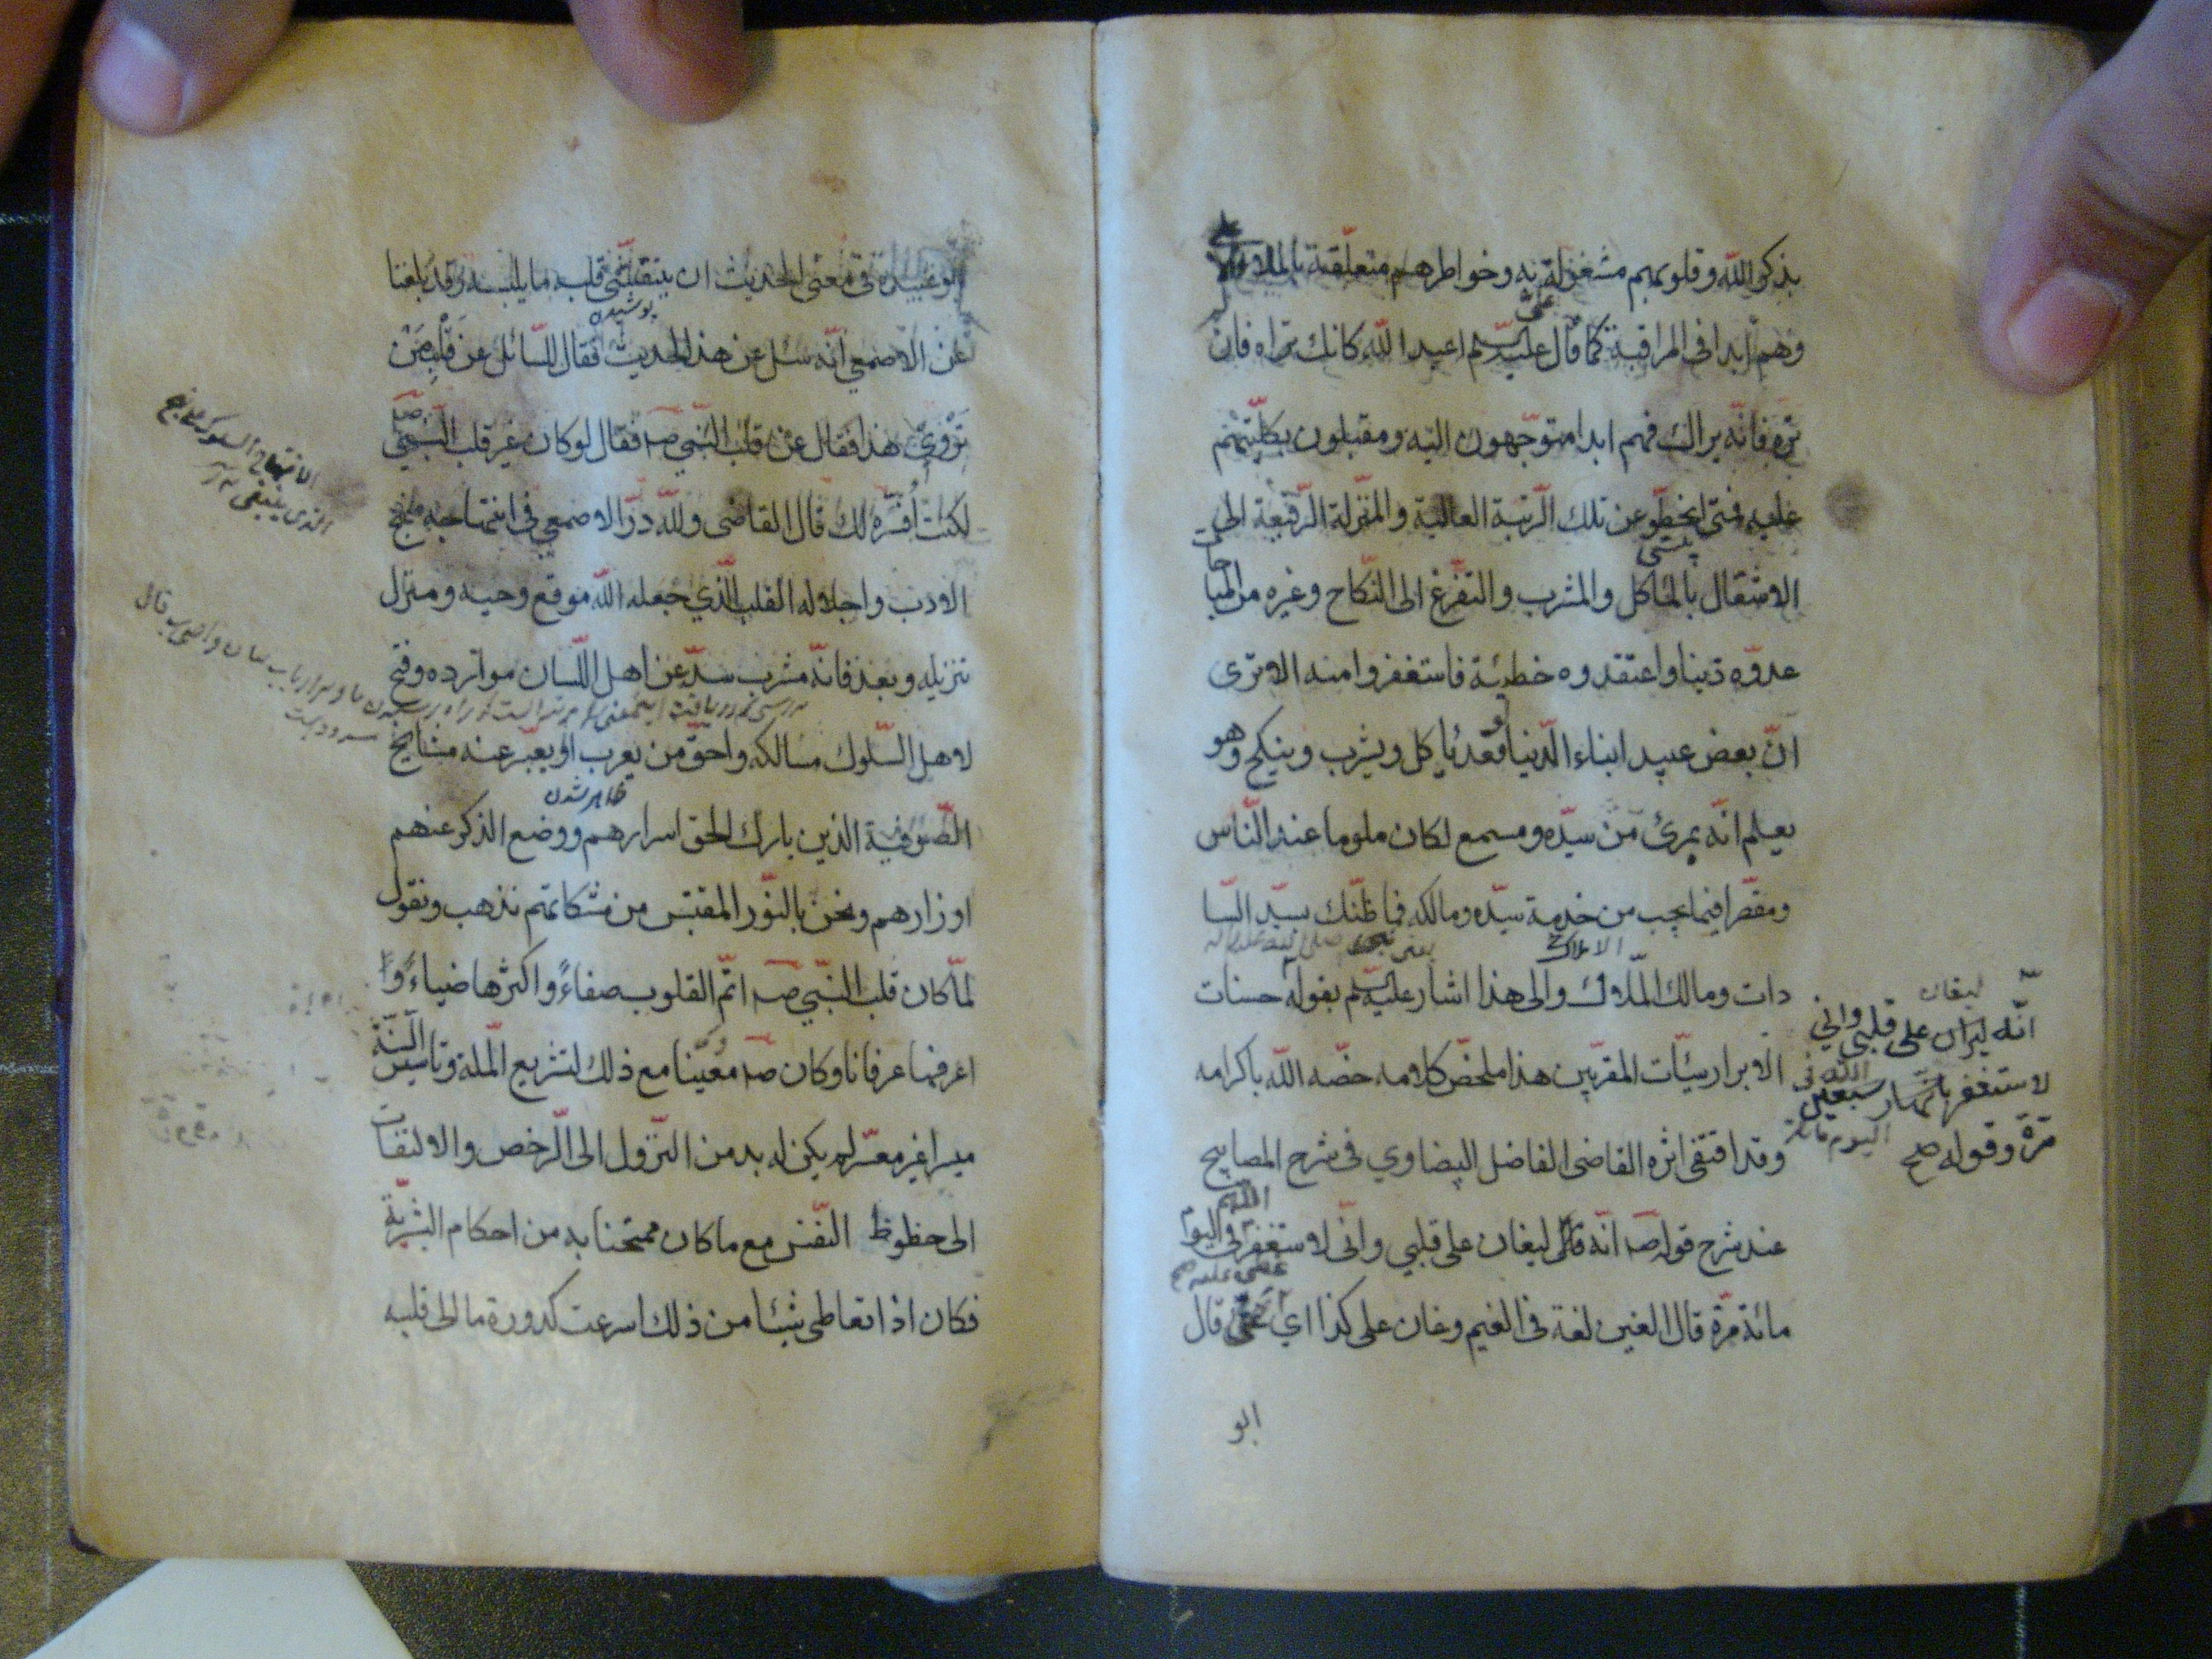 بذكر الله وقلوبهم مشغولة به وخواطرهم متعلقة بالملاء الاعلى
وهم ابدا في المراقبة كما قال عليه السلم اعبد الله كانك تراه فان لم
تره فانه يراك فهم ابدا متوجهون اليه ومقبلون بكليتهم
عليه فمتى انحطو عن تلك الرتبة العالية والمنزلة الرفيعة الى
الاشتغال بالماكل والمشرب والتفرغ الى النكاح وغيره من المباحات
عدوه ذنبا واعتقدوه خطيئة فاستغفروا منه الا ترى
ان بعض عبيد ابناء الدنيا لو قعد ياكل ويشرب وينكح وهو
يعلم انه بمرئ من سيده ومسمع لكان ملوما عند الناس
ومقصرا فيما يجب من خدمة سيده ومالكه فما ظنك بسيد السا
الاملاك
دات ومالك الملاك والى هذا اشار عليه السلم بقوله حسنات
الابرار سيئات المقربين هذا ملخص كلامه خصه الله باكرامه
وقد اقتفى اثره القاضى الفاضل البيضاوي في شرح المصابيح
عند شرح قوله صه انه قال ليغان على قلبي وانى لاستغفر الله في اليوم
مائة مرة قال الغين لغة في الغيم وغان على كذا اي غطى قال
ابو
ليغان
انه ليران على قلبي واني
لاستغفر بالنهار سبعين
مرة وقوله صح
ابو عبيدة في معنى الحديث ان يتغشى قلبه ما يلبسه وقد بلغنا
پوشیدن
عن الاصمعي انه سئل عن هذا الحديث فقال للسائل عن قلب من
تروي هذا فقال عن قلب النبي صه فقال لو كان غير قلب النبي صه
لكنت افسره لك قال القاضى ولله در الاصمعي في انتهاجه منهج
الادب واجلاله القلب الذي جعله الله موقع وحيه ومنزل
تنزيله وبعد فانه مشرب سد عن اهل اللسان موارده وفتح
لاهل السلوك مسالكه واحق من يعرب او يعبر عنه مشايخ
ظاهر شدن
الصوفية الذين بارك الحق اسرارهم ووضع الذكر عنهم
اوزارهم ونحن بالنور المقتبس من مشكاتهم نذهب ونقول
لما كان قلب النبي صه اتم القلوب صفاء واكثرها ضياء و
اعرفها عرفانا وكان صه معينا مع ذلك لتشريع الملة وتاسيس السنة
ميسرا غير معسر لم يكن له بد من النزول الى الرخص والالتفات
الى حظوظ النفس مع ما كان ممتحنا به من احكام البشرية
فكان اذا تعاطى شيئا من ذلك اسرعت كدورة ما الى قلبه